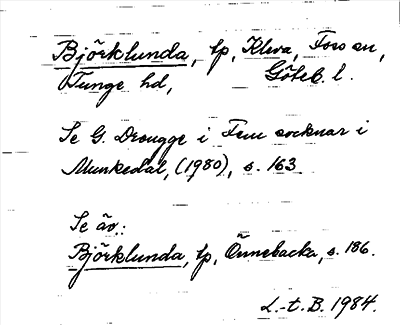 Björklunda, tp, Kleva, Foss sn,
Tunge hd, Göteb. l.
Se G. Drougge i Fem socknar i
Munkedal, (1980), s. 163
Se äv.:
Björklunda, tp, Önnebacka, s. 186.
L.-t. B. 1984.